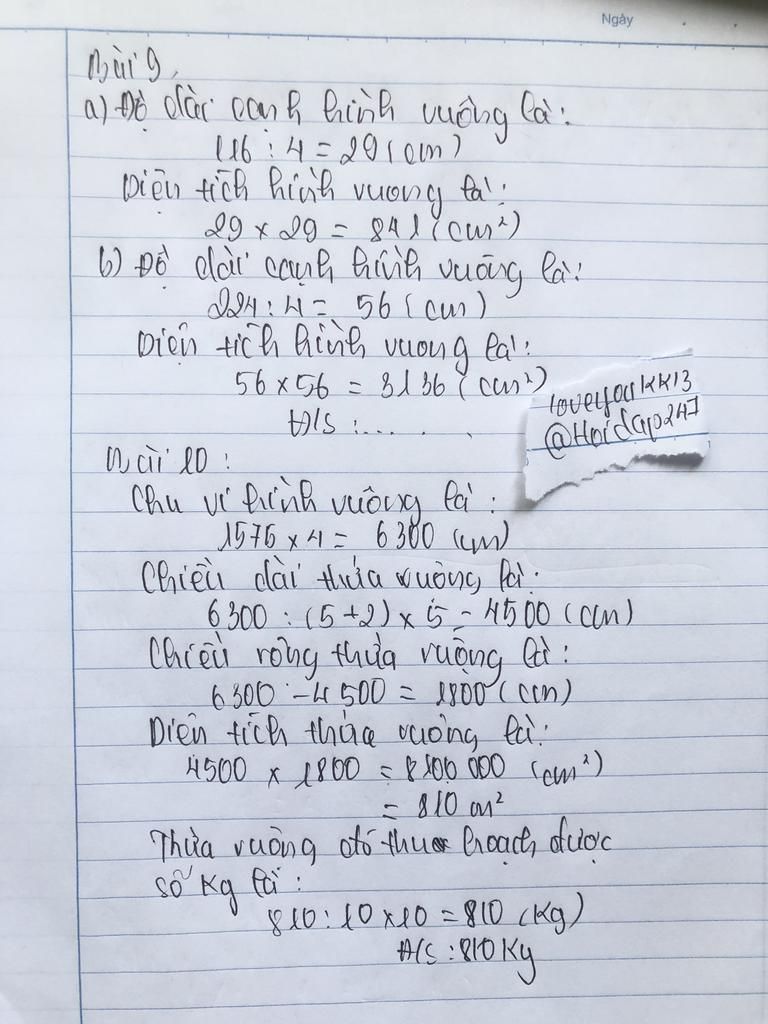 Ngày
Bài 9,
a) Độ dài cạnh hình vuông là:
116 : 4 = 29 (cm)
Diện tích hình vuong là:
29 × 29 = 841 (cm²)
b) Độ dài cạnh hình vuông là:
224 : 4 = 56 (cm)
Diện tích hình vuong là:
56 × 56 = 3136 (cm²)
Đ/s :.... .
loveyouKK13
@Hoidap247
Bài 10 :
Chu vi hình vuông là :
1575 × 4 = 6300 (cm)
Chiều dài thửa vuông là:
6300 : (5+2) × 5 = 4500 (cm)
Chiều rộng thửa vuông là :
6300 - 4500 = 1800 (cm)
Diện tích thửa vuông là:
4500 × 1800 = 8100 000 (cm²)
= 810 m²
Thửa vuông đó thu hoạch được
số Kg là :
810 : 10 × 10 = 810 (Kg)
Đ/s : 810 Kg